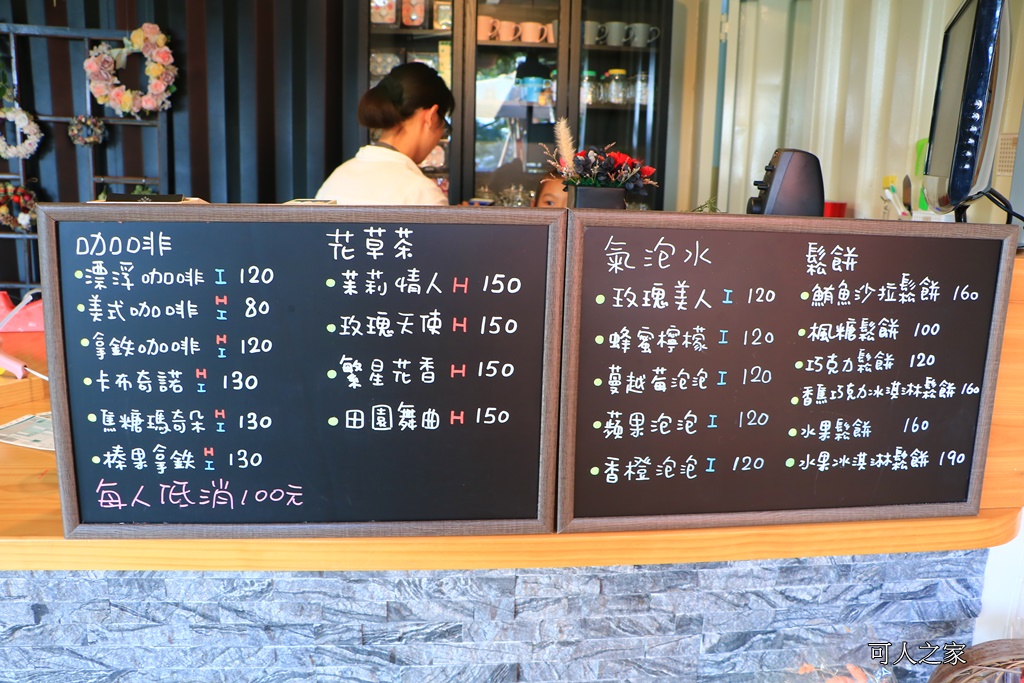 咖啡
漂浮咖啡 I 120
美式咖啡 H I 80
拿鉄咖啡 H I 120
卡布奇諾 H I 130
焦糖瑪奇朵 H I 130
榛果拿鉄 H I 130
每人低消100元
花草茶
茉莉情人 H 150
玫瑰天使 H 150
繁星花香 H 150
田園舞曲 H 150
氣泡水
玫瑰美人 I 120
蜂蜜檸檬 I 120
蔓越莓泡泡 I 120
蘋果泡泡 I 120
香橙泡泡 I 120
鬆餅
鮪魚沙拉鬆餅 160
楓糖鬆餅 100
巧克力鬆餅 120
香蕉巧克力冰淇淋鬆餅 160
水果鬆餅 160
水果冰淇淋鬆餅 190
可人之家